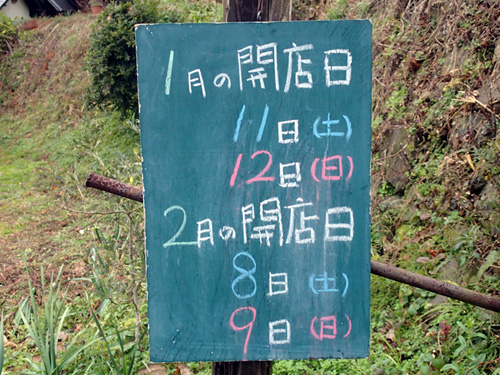 1月の開店日
11日(土)
12日(日)
2月の開店日
8日(土)
9日(日)